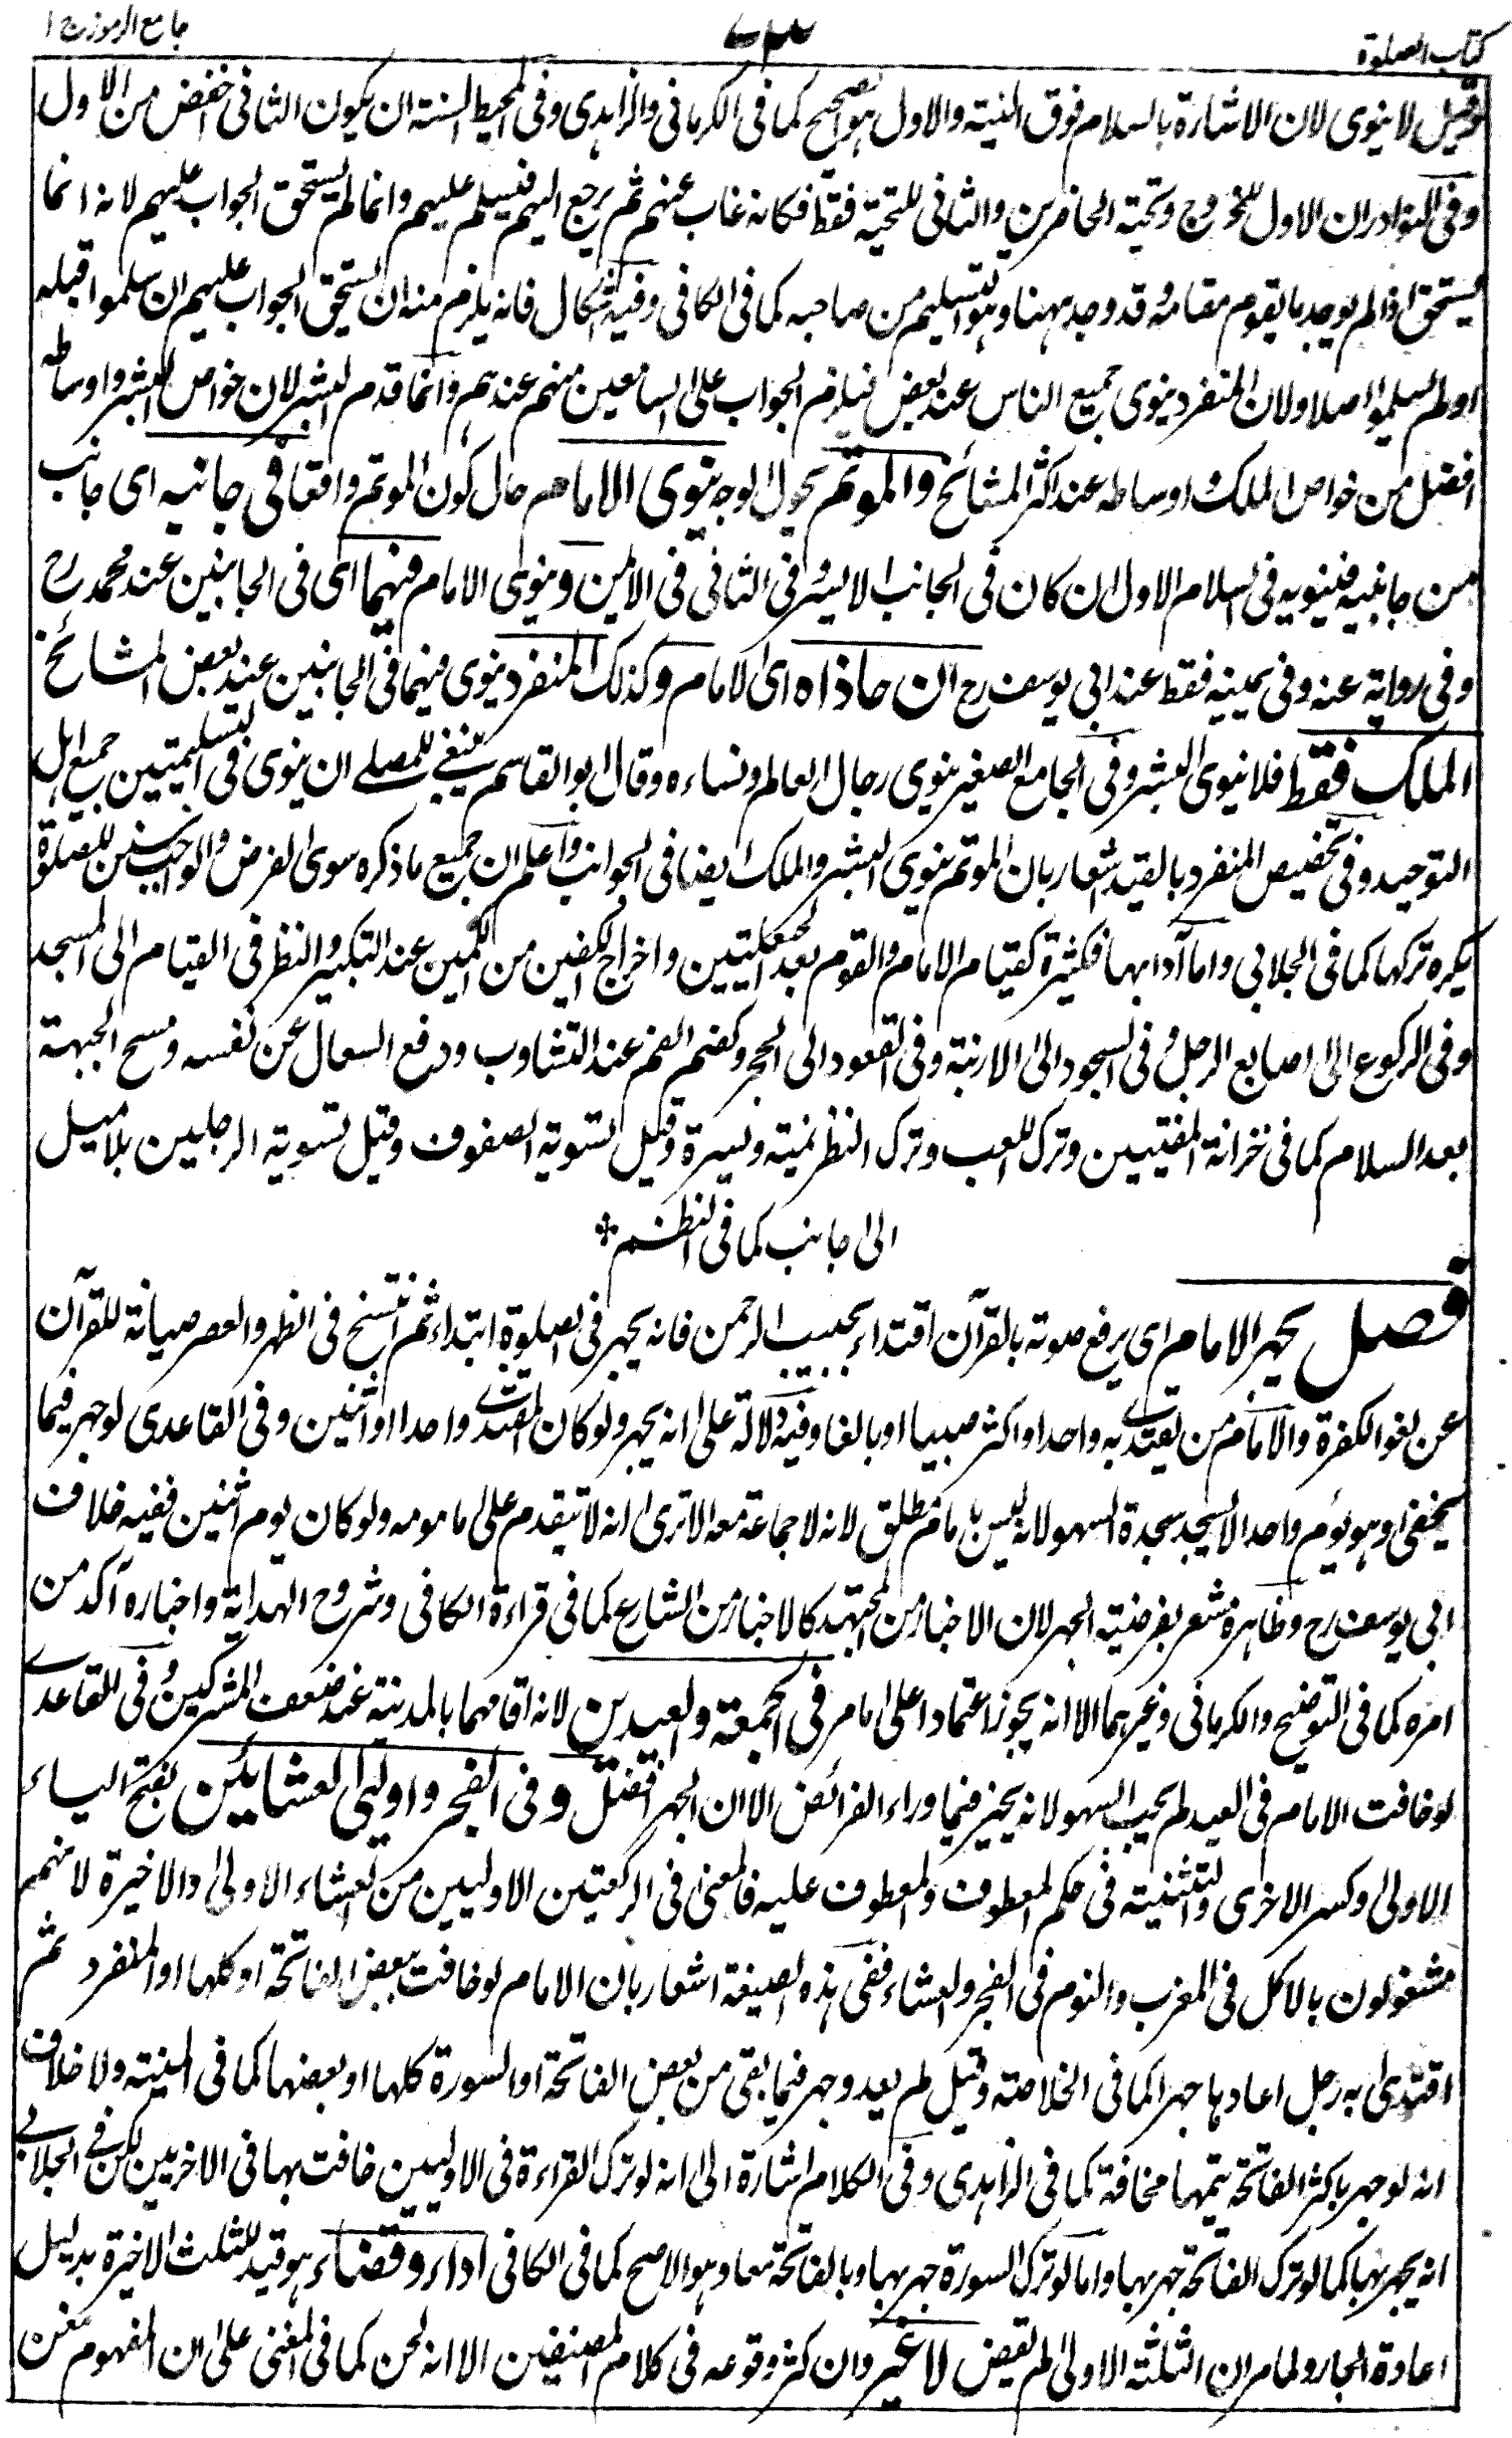 كتاب الصلوة
جامع الرموز ج ١
وقيل لا ينوى لان الاشارة بالسلام فوق النية والاول هو الصحيح كما فى الكرمانى والزاهدى وفى المحيط السنة ان يكون الثانى اخفض من الاول
وفى النوادر ان الاول للخروج وتحية الحاضرين والثانى للتحية فقط فكانه غاب عنهم ثم يرجع اليهم فيسلم عليهم وانما لم يستحق الجواب عليهم لانه انما
يستحق اذا لم يوجد ما يقوم مقامه وقد وجد ههنا وهو التسليم من صاحبه كما فى الكافى وفيه اشكال فانه يلزم منه ان يستحق الجواب عليهم ان سلموا قبله
او لم يسلموا اصلا ولان المنفرد ينوى جميع الناس عند بعض فيلزم الجواب على السامعين منهم عندهم وانما قدم البشر لان خواص البشر واوساطه
افضل من خواص الملك واوساطه عند اكثر المشائخ والموتم يحول الوجه ينوى الامام حال كون الموتم واقعا فى جانبه اى جانب
من جانبيه فينويه فى السلام الاول ان كان فى الجانب الايسر وفى الثانى فى الايمن وينوى الامام فيهما اى فى الجانبين عند محمد رح
وفى رواية عنه وفى يمينه فقط عند ابى يوسف رح ان حاذاه اى الامام وكذلك المنفرد ينوى فيهما فى الجانبين عند بعض المشائخ
الملك فقط فلا ينوى البشر وفى الجامع الصغير ينوى رجال العالم ونساءه وقال ابو القاسم ينبغى للمصلے ان ينوى فى التسليمتين جميع اهل
التوحيد وفى تخصيص المنفرد بالقيد اشعار بان الموتم ينوى البشر والملك ايضا فى الجوانب واعلم ان جميع ما ذكره سوى الفرض والواجب سنن للصلوة
يكره تركها كما فى الجلابى واما آدابها فكثيرة كقيام الامام والقوم بعد الحيعلتين واخراج الكفين من الكمين عند التكبير والنظر فى القيام الى المسجد
وفى الركوع الى اصابع الرجل وفى السجود الى الارنبة وفى القعود الى الحجر وكضم الفم عند التثاوب ودفع السعال عن نفسه ومسح الجبهة
بعد السلام كما فى خزانة المفتيين وترك اللعب وترك النظر يمنة ويسرة وقيل تسوية الصفوف وقيل تسوية الرجلين بلا ميل
الى جانب كما فى النظم *
فصل يجهر الامام اى يرفع صوته بالقرآن اقتداء بحبيب الرحمن فانه يجهر فى الصلوة ابتداء ثم انتسخ فى الظهر والعصر صيانة للقرآن
عن لغو الكفرة والامام من يقتدے به واحدا او اكثر صبيا او بالغا وفيه دلالة على انه يجهر ولو كان المقتدے واحدا او اثنين وفى القاعدى لو جهر فيما
يخفى او هو يوم واحدا لا يسجد سجدة السهو لانه ليس بامام مطلق لانه لا جماعة معه الا ترى انه لا يتقدم على مامومه ولو كان يوم اثنين ففيه خلاف
ابى يوسف رح وظاهره مشعر بفرضية الجهر لان الاخبار من المجتهد كالاخبار من الشارع كما فى قراءة الكافى وشروح الهداية واخباره آكد من
امره كما فى التوضيح والكرمانى وغيرهما الا انه يجوز اعتمادا على ما مر فى الجمعة والعيدين لانه اقامهما بالمدينة عند ضعف المشركين وفى القاعدے
لو خافت الامام فى العيد لم يجب السهو لانه يخير فيما وراء الفرائض الا ان الجهر افضل وفى الفجر واوليى العشائين بفتح الياء
الاولى وكسر الاخرى والتثنية فى حكم المعطوف والمعطوف عليه فالمعنى فى الركعتين الاوليين من العشاء الاولى والاخيرة لانهم
مشغولون بالاكل فى المغرب والنوم فى الفجر والعشاء ففى هذه الصيغة اشعار بان الامام لو خافت ببعض الفاتحة او كلها او المنفرد ثم
اقتدى به رجل اعادها جهرا كما فى الخلاصة وقيل لم يعد وجهر فيما بقى من بعض الفاتحة او السورة كلها او بعضها كما فى المنية ولا خلاف
انه لو جهر باكثر الفاتحة يتمها مخافة كما فى الزاهدى وفى الكلام اشارة الى انه لو ترك القراءة فى الاوليين خافت بها فى الاخريين لكن فى الجلابے
انه يجهر بها كما لو ترك الفاتحة جهر بها واما لو ترك السورة جهر بها وبالفاتحة معا وهو الاصح كما فى الكافى اداء وقضاء هو قيد للثلث الاخيرة بدليل
اعادة الجار ولما مر ان الثلثة الاولى لم تقض لا غير وان كثر وقوعه فى كلام المصنفين الا انه لحن كما فى المغنى على ان المفهوم مغن